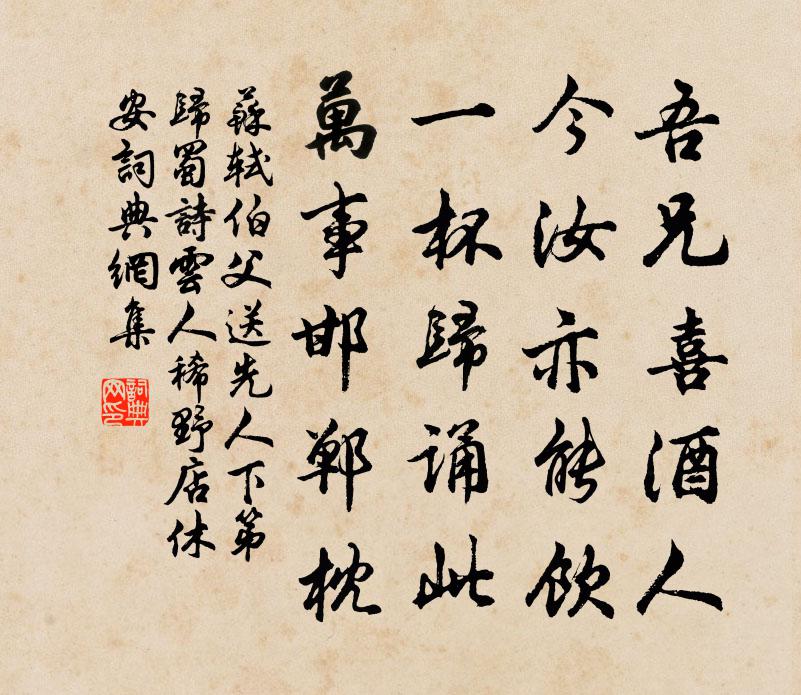 吾兄喜酒人
今汝亦能飲
一杯歸誦此
萬事邯鄲枕
蘇軾伯父送先人下第
歸蜀詩雲人稀野店休
安詞典網集
詞典網印